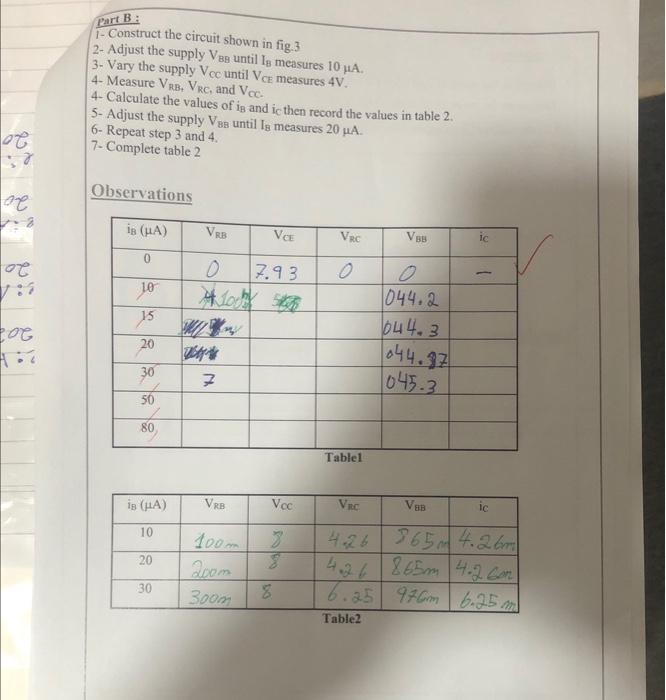 Part B :
1- Construct the circuit shown in fig.3
2- Adjust the supply VBB until IB measures 10 µA.
3- Vary the supply Vcc until VCE measures 4V.
4- Measure VRB, VRC, and VCC.
4- Calculate the values of iB and ic then record the values in table 2.
5- Adjust the supply VBB until IB measures 20 µA.
6- Repeat step 3 and 4.
7- Complete table 2
Observations
iB (µA) VRB VCE VRC VBB ic
0 0 7.93 0 0 —
10 044.2
15 044.3
20 044.37
30 7 045.3
50
80
Table1
iB (µA) VRB VCC VRC VBB ic
10 100m 8 4.26 865m 4.26m
20 200m 8 4.26 865m 4.26m
30 300m 8 6.25 976m 6.25m
Table2